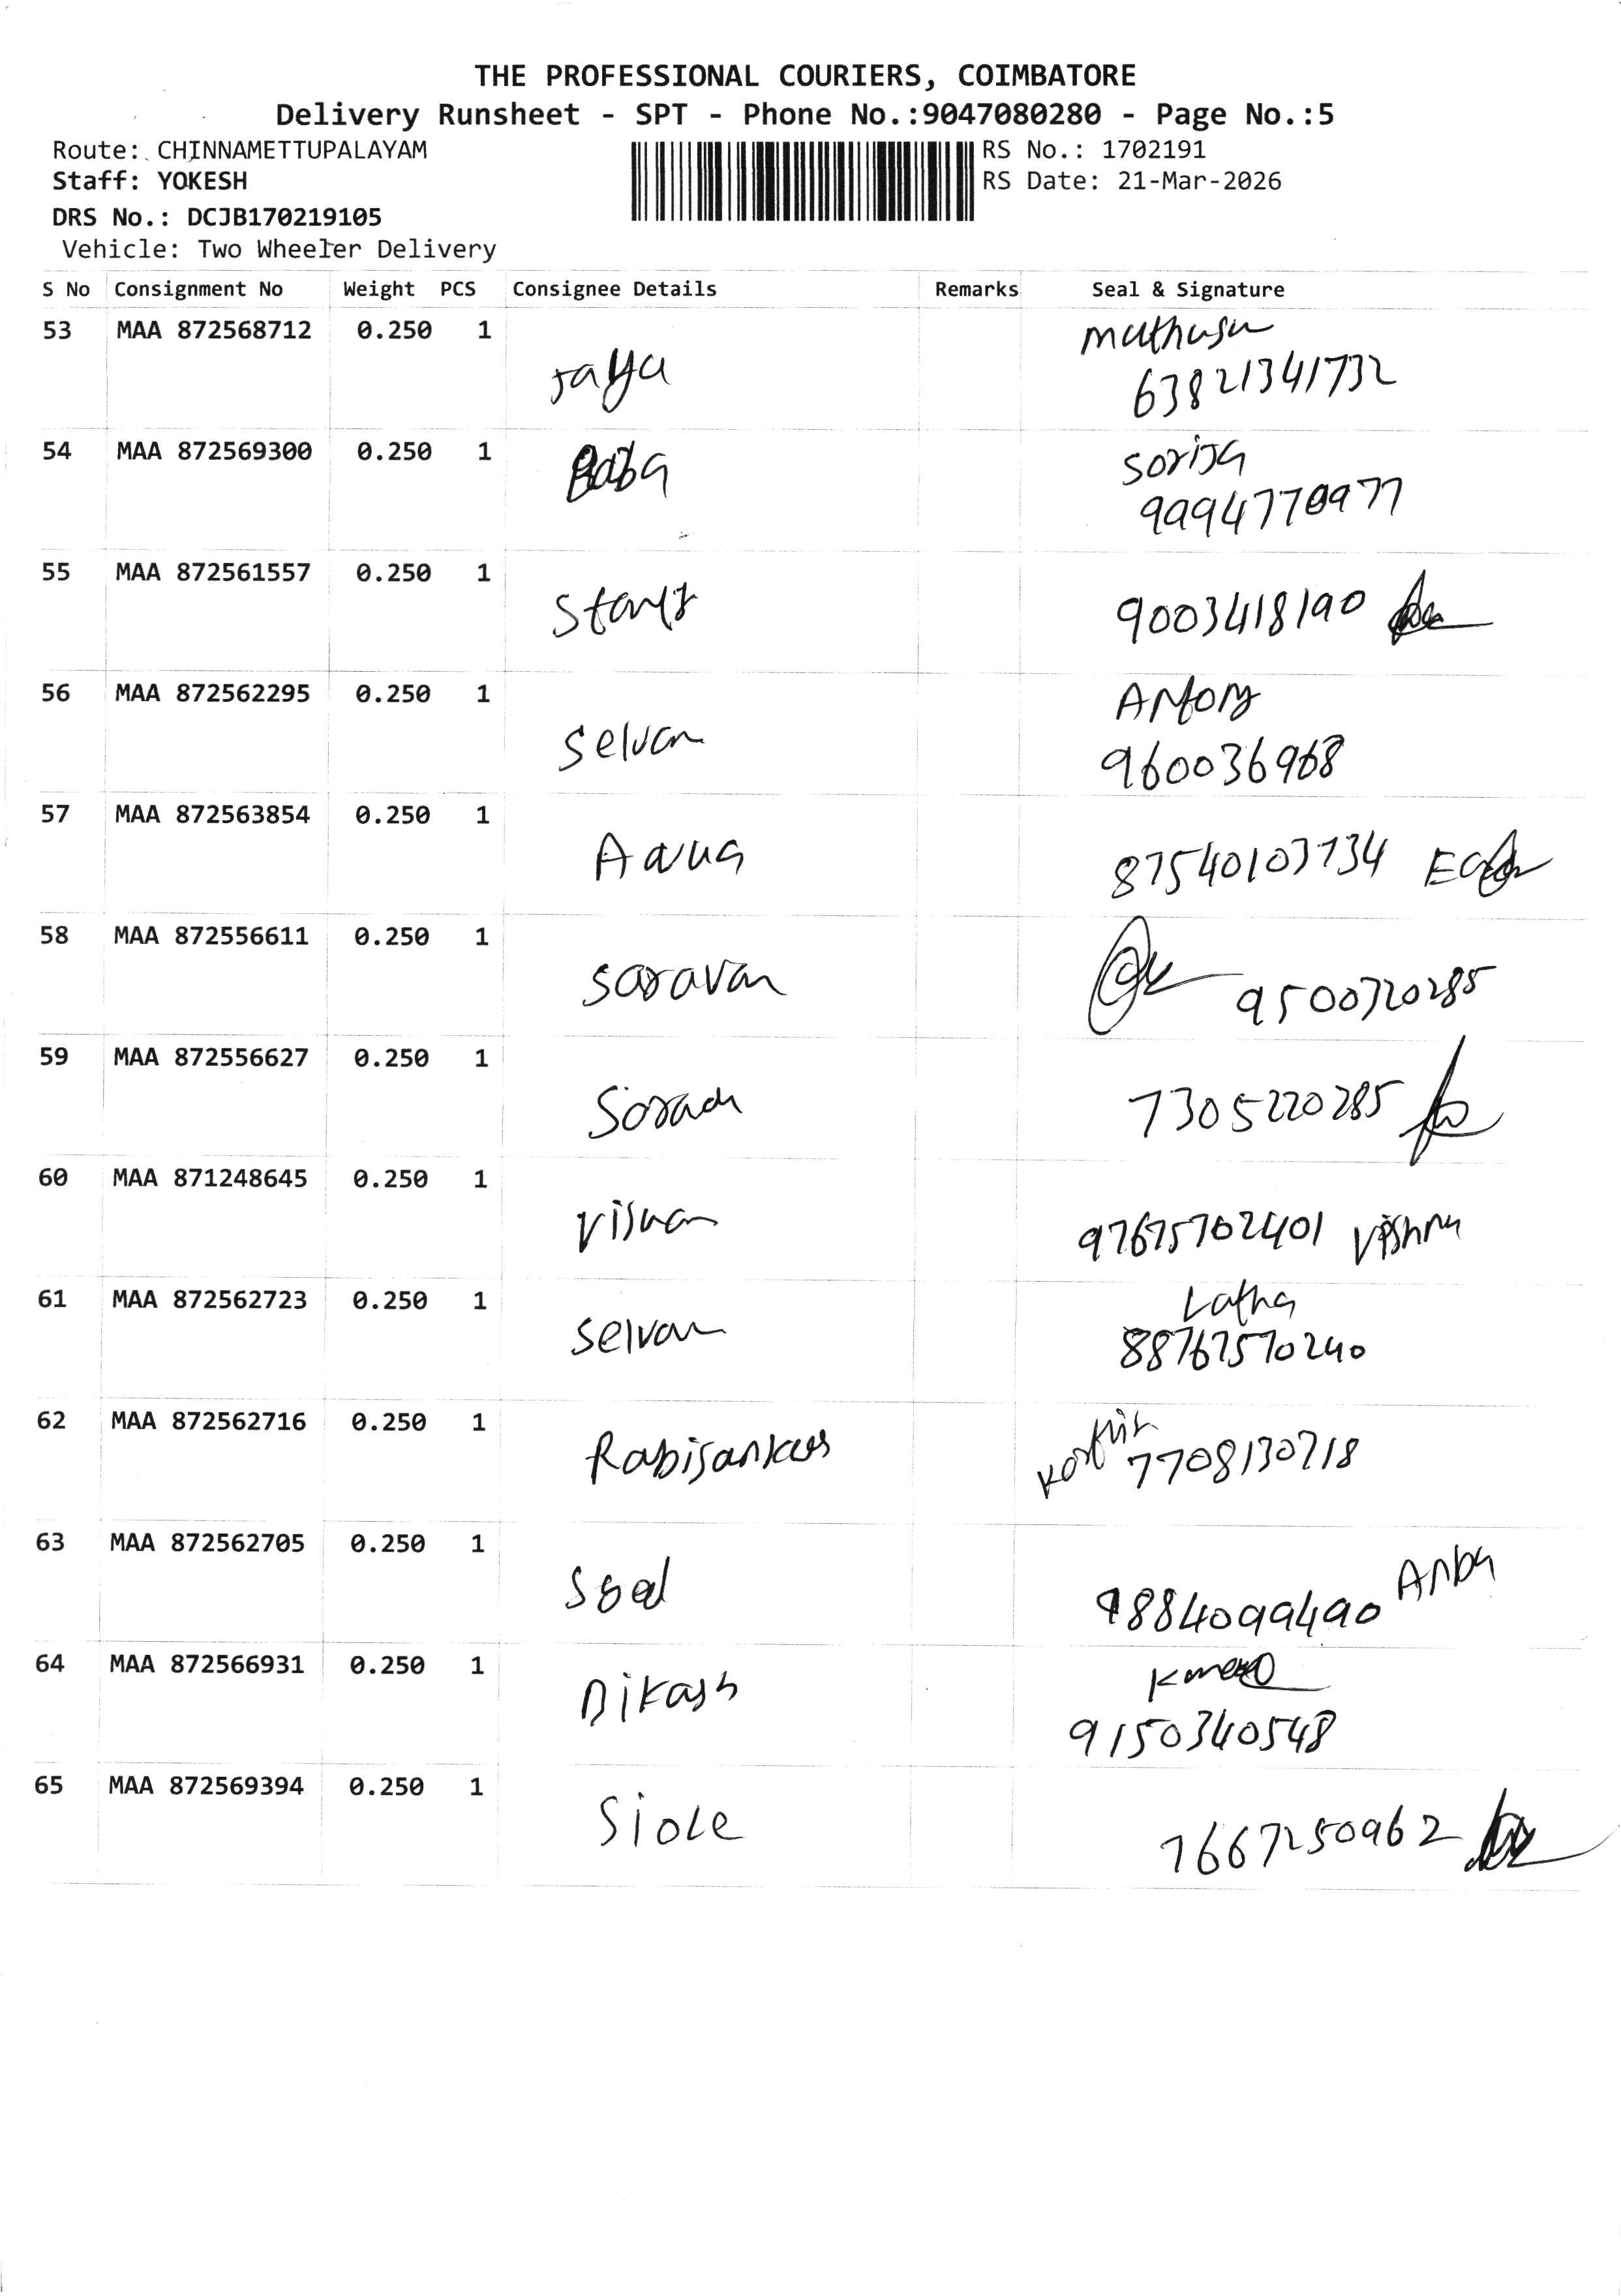 THE PROFESSIONAL COURIERS, COIMBATORE
Delivery Runsheet - SPT - Phone No.:9047080280 - Page No.:5
Route: CHINNAMETTUPALAYAM
RS No.: 1702191
Staff: YOKESH
RS Date: 21-Mar-2026
DRS No.: DCJB170219105
Vehicle: Two Wheeler Delivery
S No Consignment No Weight PCS Consignee Details Remarks Seal & Signature
53 MAA 872568712 0.250 1
63821341732
54 MAA 872569300 0.250 1 Baba
9994770977
55 MAA 872561557 0.250 1
9003418190
56 MAA 872562295 0.250 1 Selvan
Antony
960036968
57 MAA 872563854 0.250 1
87540103734
58 MAA 872556611 0.250 1 saravan
9500720285
59 MAA 872556627 0.250 1
7305220285
60 MAA 871248645 0.250 1
97675702401 Vishnu
61 MAA 872562723 0.250 1 selvan
Latha
88767570240
62 MAA 872562716 0.250 1
7708130718
63 MAA 872562705 0.250 1
9884099490
64 MAA 872566931 0.250 1
9150340548
65 MAA 872569394 0.250 1
7667250962